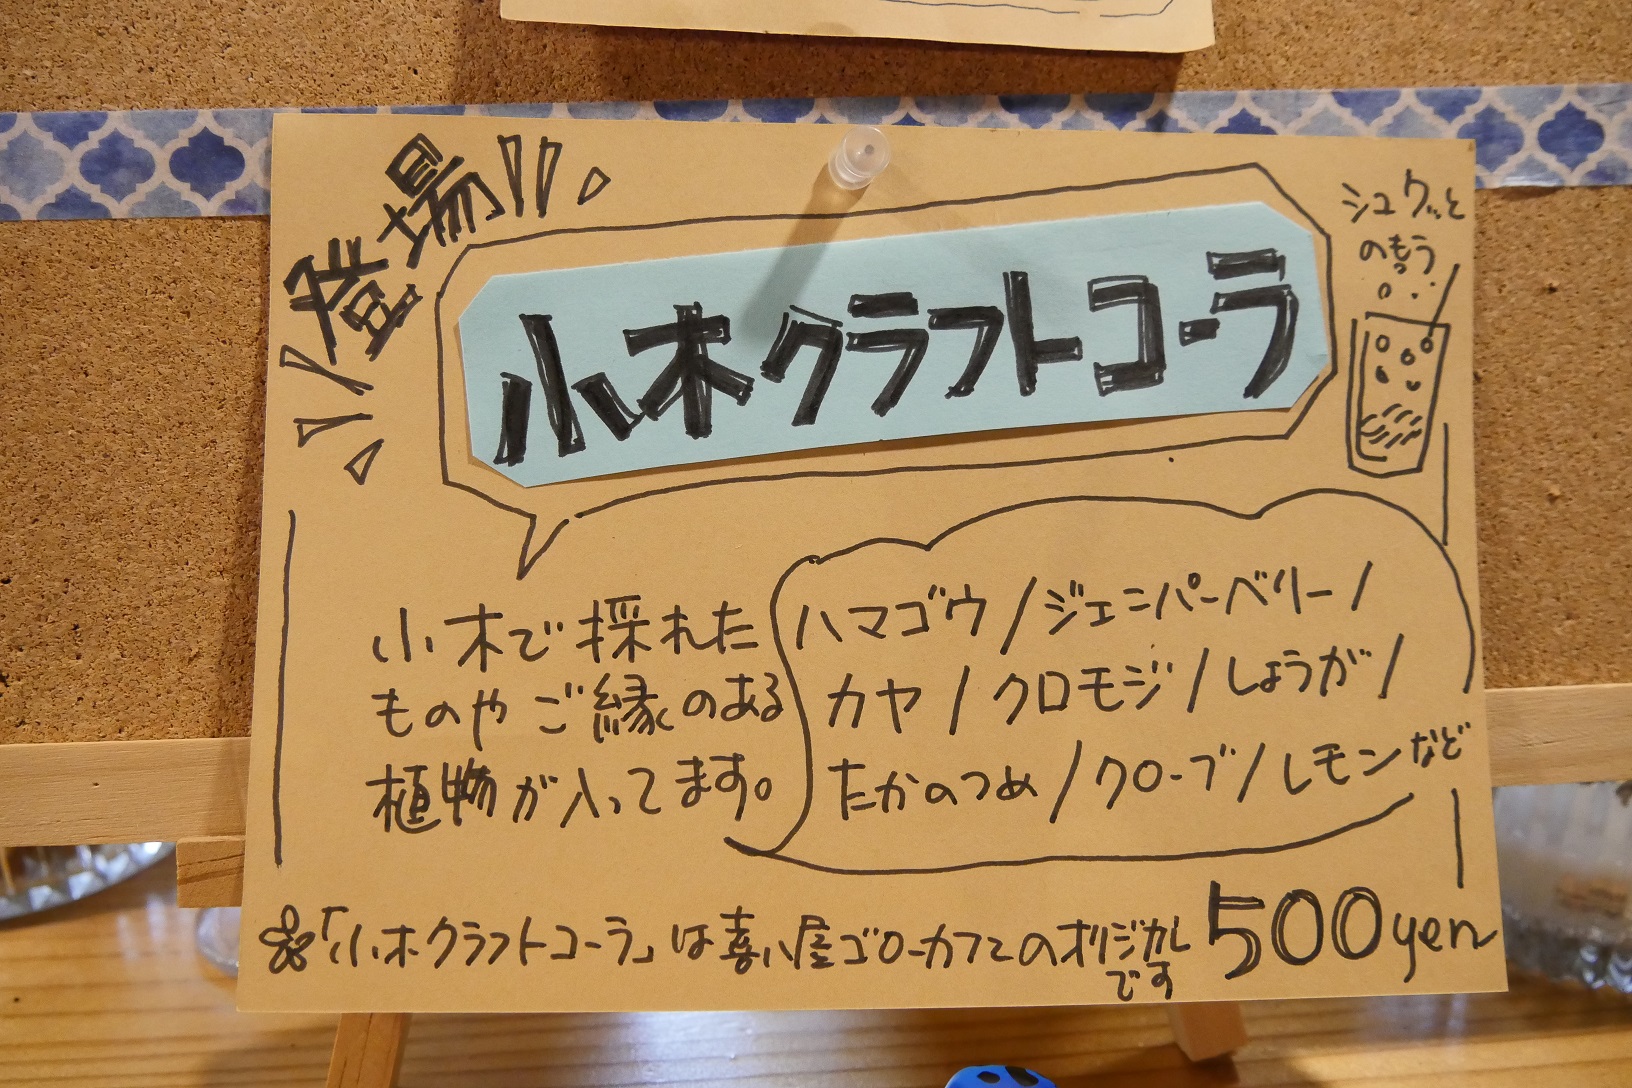 登場
小木クラフトコーラ
シュワッと
のもう
小木で採れた
ものや ご縁のある
植物が入ってます。
ハマゴウ/ジェニパーベリー/
カヤ/クロモジ/しょうが/
たかのつめ/クローブ/レモンなど
「小木クラフトコーラ」は喜八屋ゴローカフェのオリジナル
です
500yen